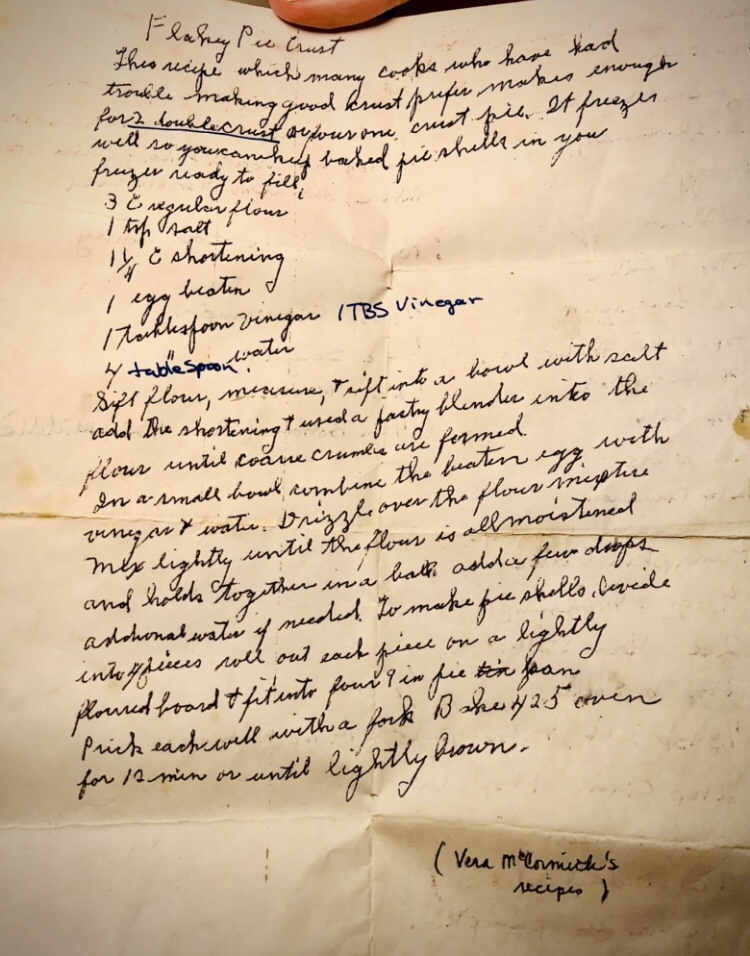 Flakey Pie Crust
This recipe which many cooks who have had
trouble making good crust prefer makes enough
for 2 double crust or four one crust pie. It freezes
well so you can keep baked pie shells in you
freezer ready to fill.
3 C regular flour
1 tsp salt
1 1/4 C shortening
1 egg beaten
1 tablespoon vinegar 1 TBS Vinegar
4 tableSpoon water
Sift flour, measure, & sift into a bowl with salt
add the shortening & used a pastry blender into the
flour until coarse crumbs are formed.
In a small bowl combine the beaten egg with
vinegar & water. Drizzle over the flour mixture
Mix lightly until the flour is all moistened
and holds together in a ball add a few drops
additional water if needed. To make pie shells, divide
into 4 pieces roll out each piece on a lightly
floured board & fit into four 9 in pie tin pan
Prick each well with a fork Bake 425 oven
for 12 min or until lightly brown.
(Vera McCormick's
recipes)